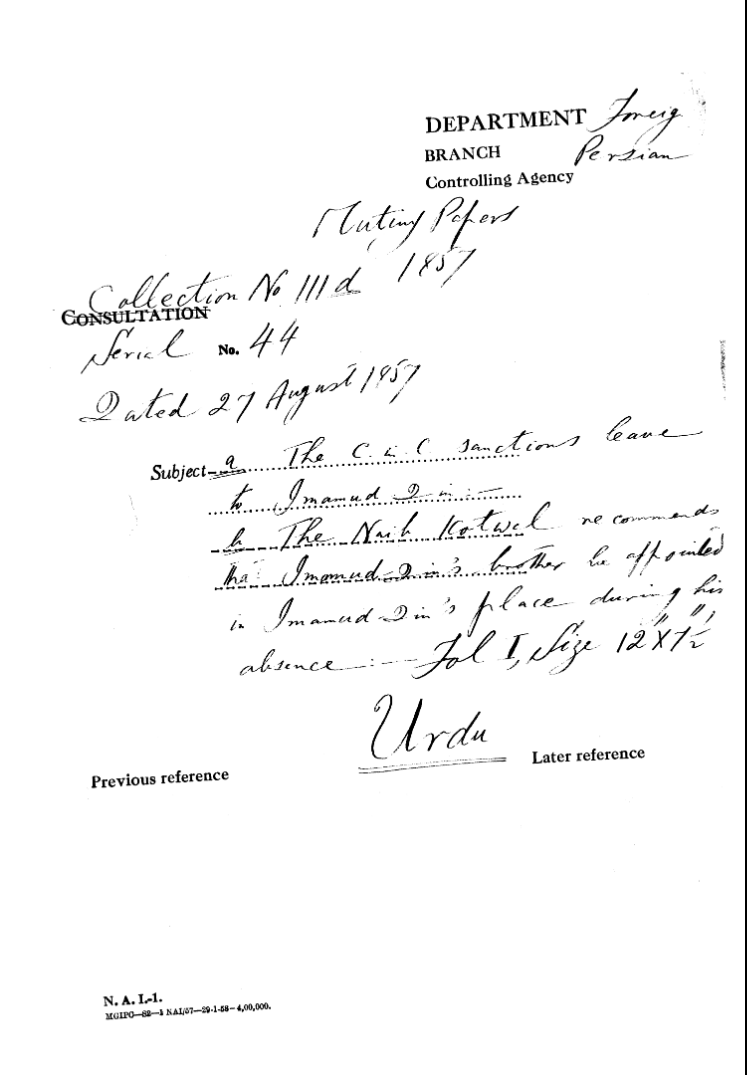 DEPARTMENT Foreig
BRANCH Persian
Controlling Agency
Mutiny Papers
1857
Collection No III d
CONSULTATION
Serial No. 44
Dated 27 August 1857
Subject- a The C in C sanctions leave
to Imamud Din :—
b The Naib Kotwal recommends
that Imamud-Din's brother be appointed
in Imamud-Din's place during his
absence :— Fol I, Size 12"X7½"
Urdu
Previous reference
Later reference
N. A. I.-1.
MGIPC—82—1 NAI/57—29-1-58—4,00,000.